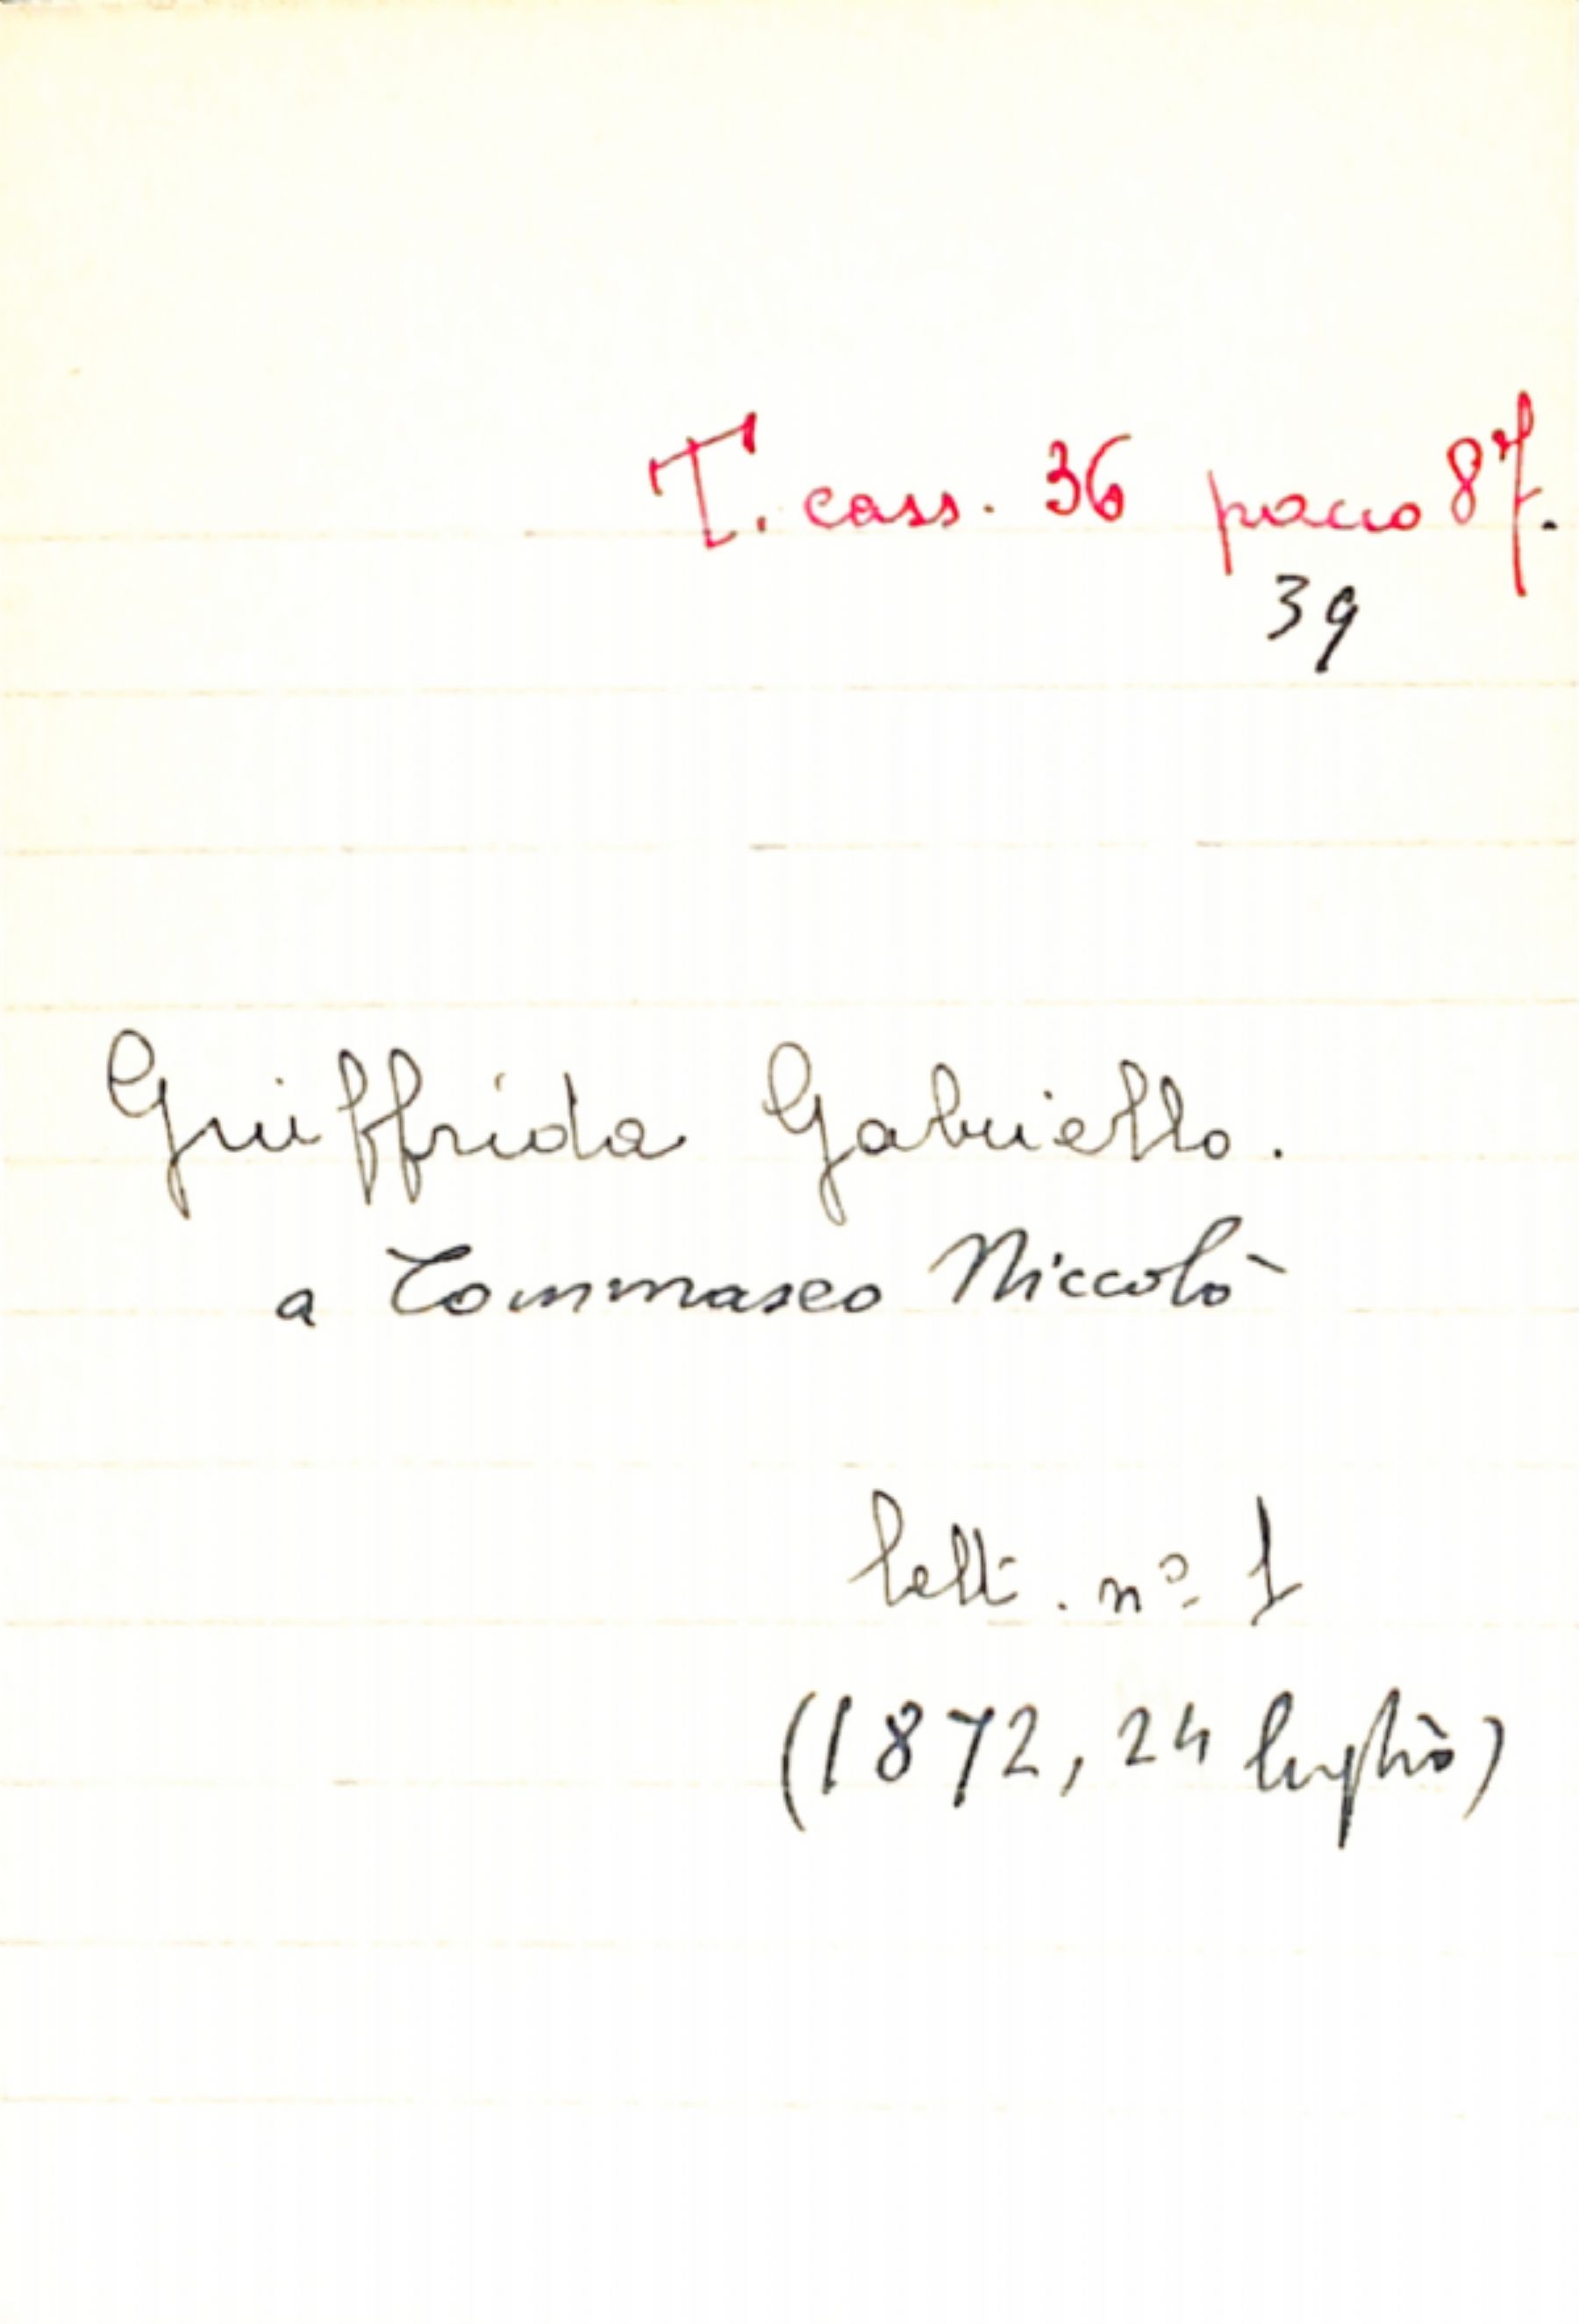 T. cass. 36 pacco 87.
39
Giuffrida Gabriello.
a Tommaseo Niccolò
lett. nº 1
(1872, 24 luglio)